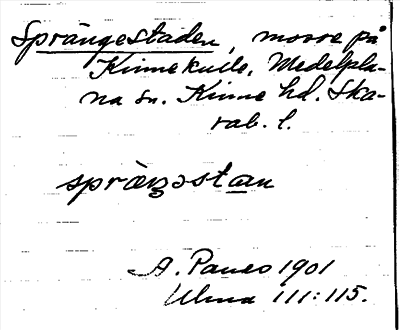 Sprängestaden, mosse på
Kinnekulle, Medelpla-
na sn. Kinne hd. Ska-
rab. l.
spräŋəstan
A. Pauco 1901
Ulma 111:115.